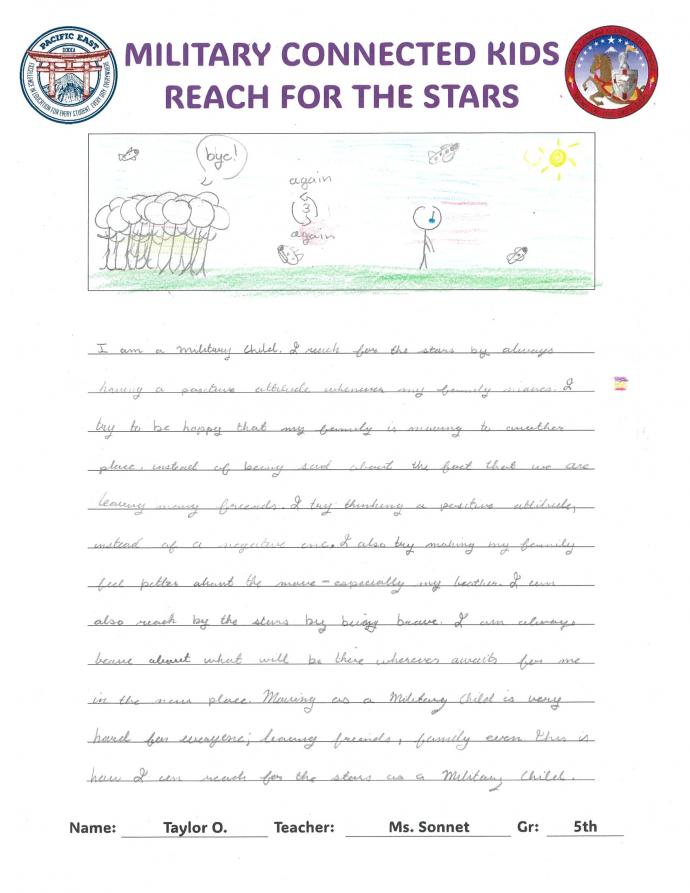 PACIFIC EAST
DODEA
EXCELLENCE IN EDUCATION FOR EVERY STUDENT, EVERY DAY, EVERYWHERE
MILITARY CONNECTED KIDS
REACH FOR THE STARS
bye!
again
3
again
I am a military Child. I reach for the stars by always
having a positive attitude whenever my family moves. I
try to be happy that my family is moving to another
place, instead of being sad about the fact that we are
leaving many friends. I try thinking a positive attitude,
instead of a negative one. I also try making my family
feel better about the move – especially my brother. I can
also reach by the stars by being brave. I am always
brave about what will be there wherever awaits for me
in the new place. Moving as a Military Child is very
hard for everyone; leaving friends, family even. This is
how I can reach for the stars as a Military Child.
Name: Taylor O. Teacher: Ms. Sonnet Gr: 5th